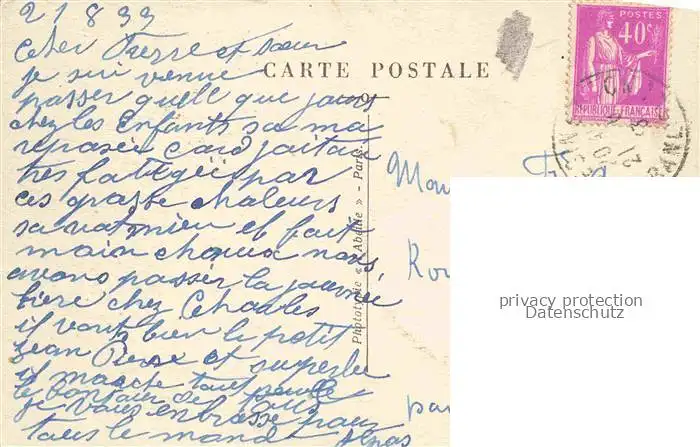 21 8 33
CARTE POSTALE
POSTES
40c
REPUBLIQUE FRANÇAISE
Cher Frerre et sœur
je sui venue
passer quell que jours
chez les Enfants sa ma
reposée car j'aitai
tres fatégéé par
ces grosse chaleurs
sa va mieu et fait
main chaux nous
avons passer la journée
hiere chez Charles
il vont bien le petit
jean Pierre et superbe
il marche tout seule
le bonjour de tous
je vous enbrasse pour
tous le mond
Phototypie « Abeille » - Paris
privacy protection
Datenschutz